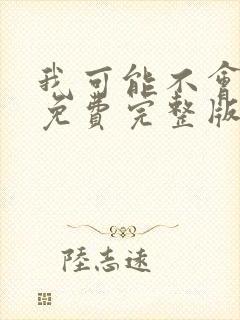 我可能不會
免費完整版
陸志遠